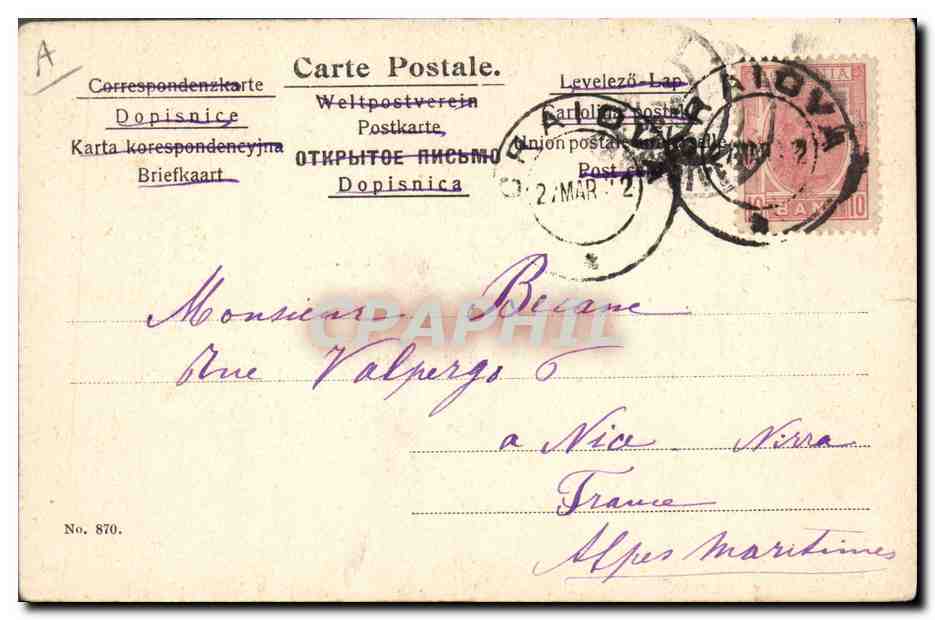 A
Carte Postale.
Correspondenzkarte
Dopisnice
Karta korespondencyjna
Briefkaart
Weltpostverein
Postkarte
ОТКРЫТОЕ ПИСЬМО
Dopisnica
Levelező-Lap
Cartolina postale
Union postale
Post
CRAIOVA
27 MAR 2
CRAIOVA
MAR 2
10 BANI 10
CPAPHIL
Monsieur Becane
Rue Valpergo 6
a Nice Nizza
France
Alpes Maritimes
No. 870.